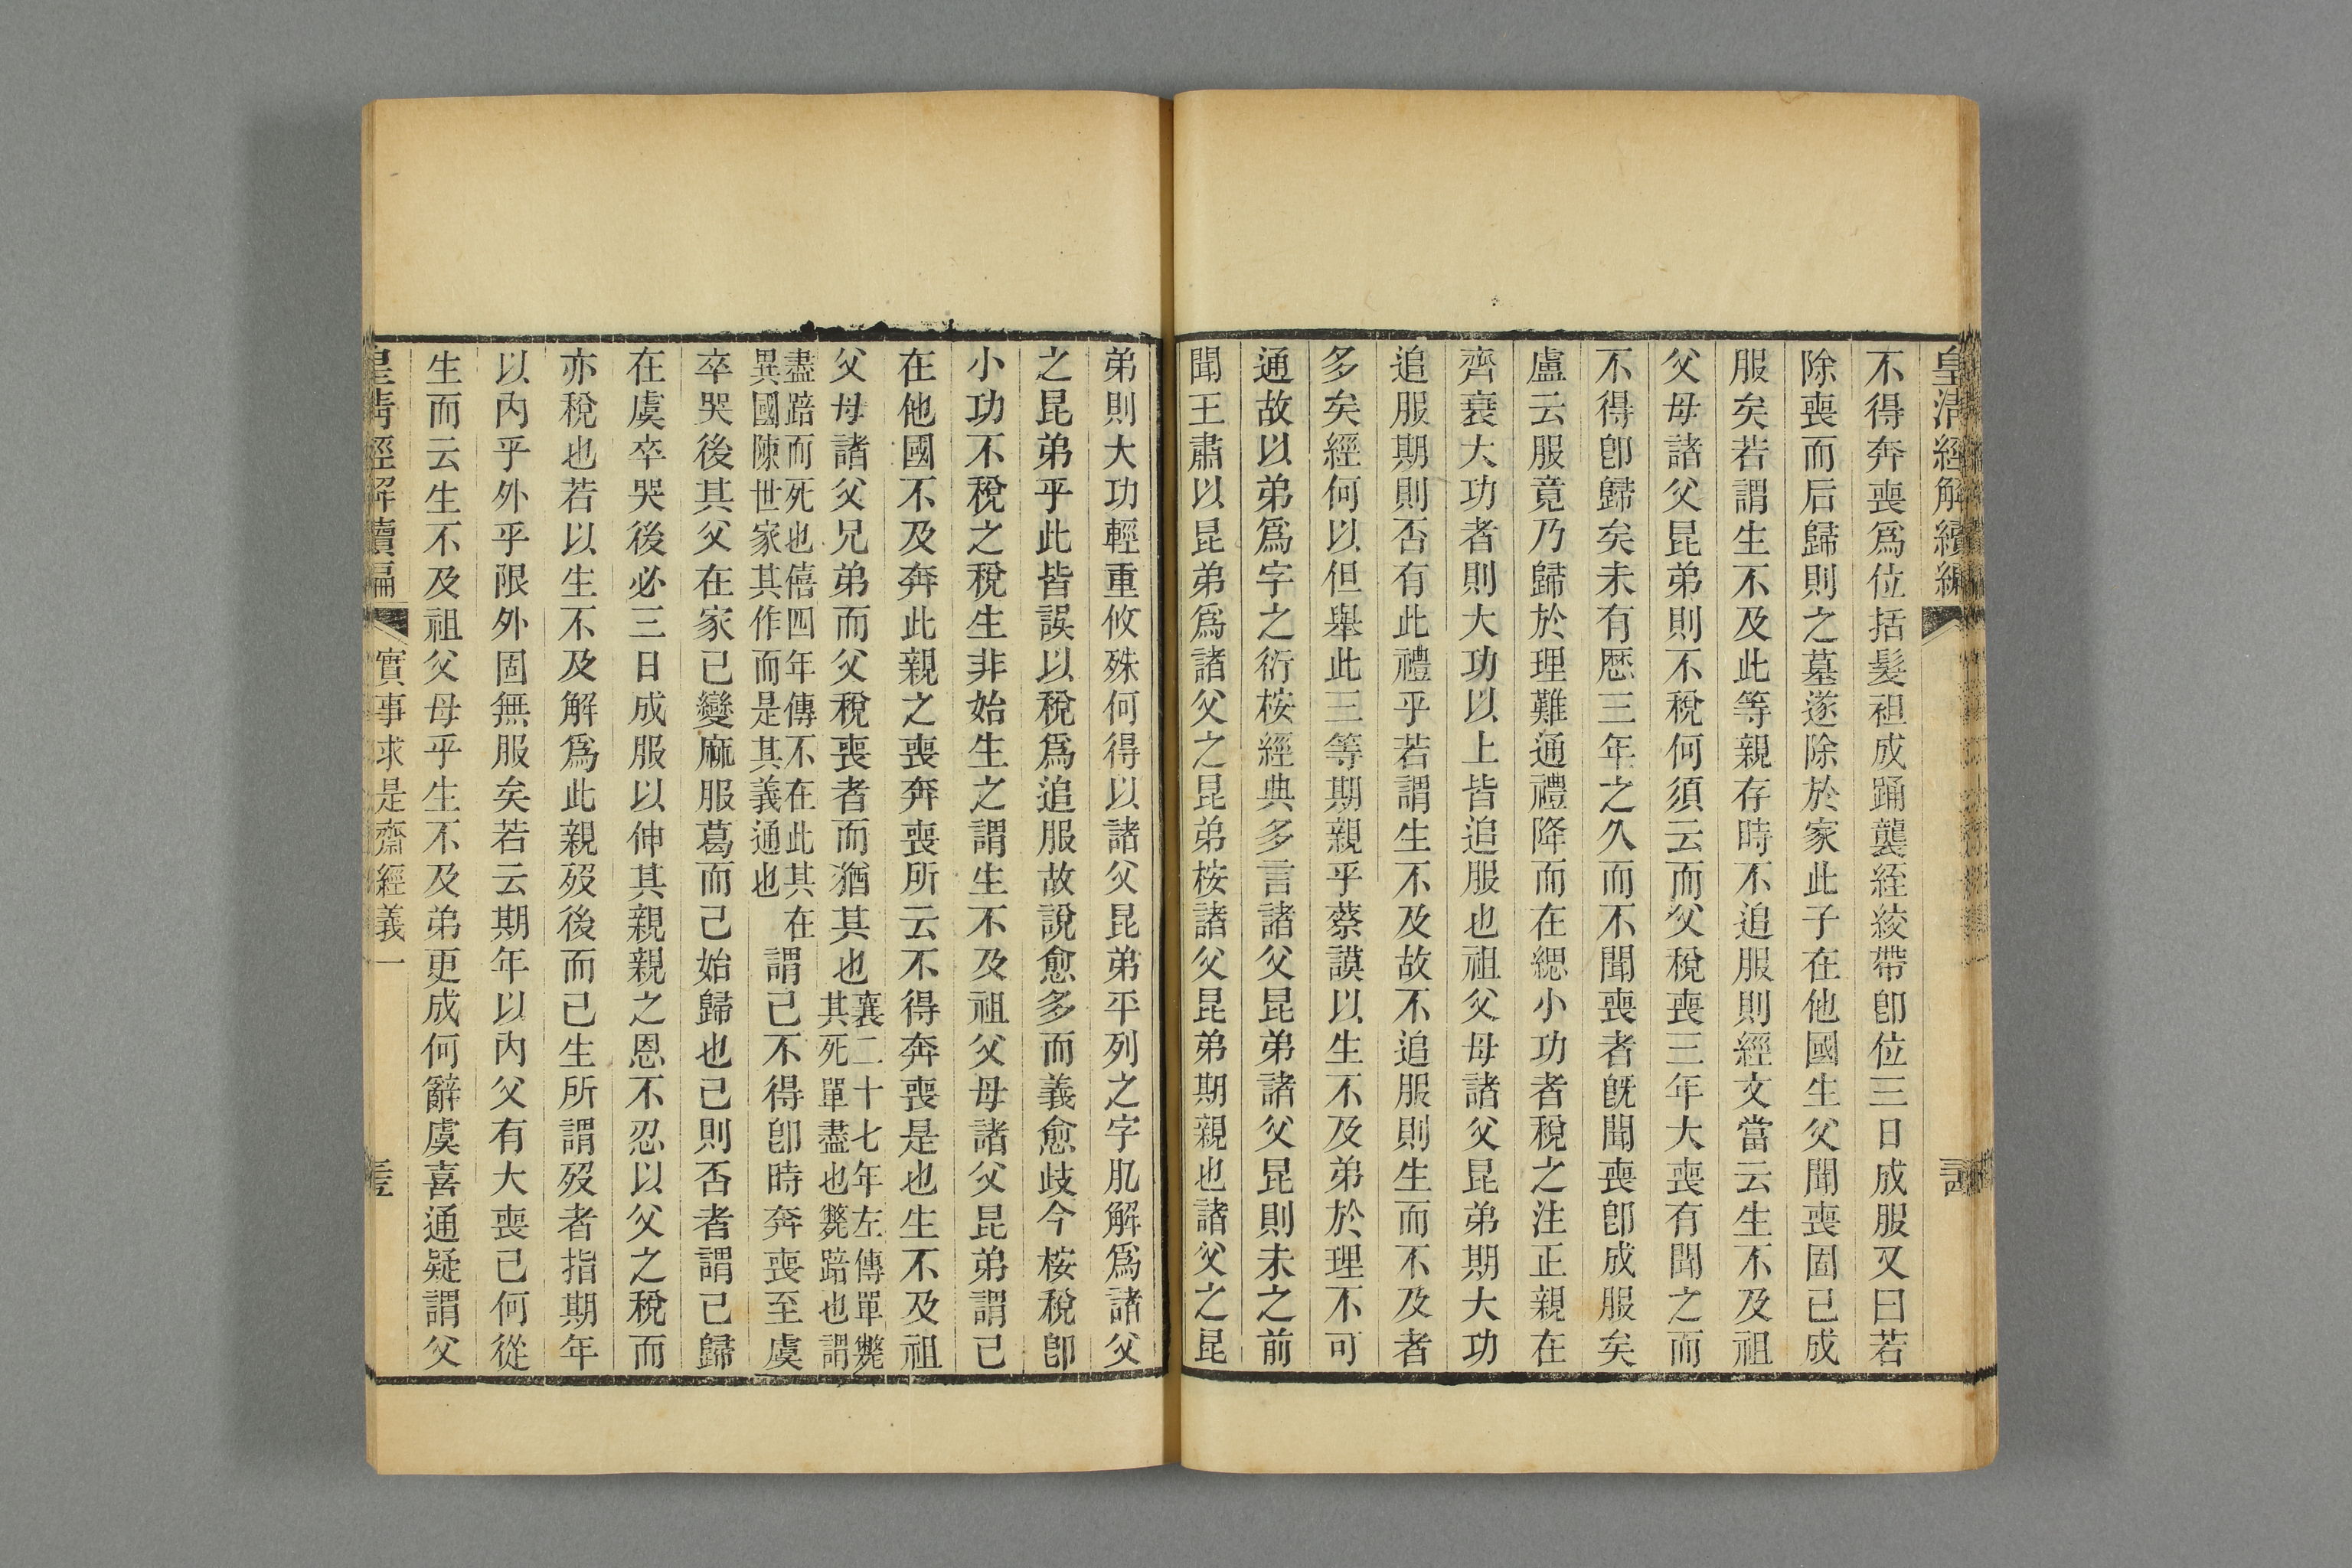 皇淸經解續編
不得奔喪爲位括髮袒成踊襲絰絞帶卽位三日成服又曰若
除喪而后歸則之墓遂除於家此子在他國生父聞喪固已成
服矣若謂生不及此等親存時不追服則經文當云生不及祖
父母諸父昆弟則不稅何須云而父稅喪三年大喪有聞之而
不得卽歸矣未有歷三年之久而不聞喪者旣聞喪卽成服矣
盧云服竟乃歸於理難通禮降而在緦小功者稅之注正親在
齊衰大功者則大功以上皆追服也祖父母諸父昆弟期大功
追服期則否有此禮乎若謂生不及故不追服則生而不及者
多矣經何以但舉此三等期親乎蔡謨以生不及弟於理不可
通故以弟爲字之衍桉經典多言諸父昆弟諸父昆則未之前
聞王肅以昆弟爲諸父之昆弟桉諸父昆弟期親也諸父之昆
弟則大功輕重攸殊何得以諸父昆弟平列之字肊解爲諸父
之昆弟乎此皆誤以稅爲追服故說愈多而義愈歧今桉稅卽
小功不稅之稅生非始生之謂生不及祖父母諸父昆弟謂己
在他國不及奔此親之喪奔喪所云不得奔喪是也生不及祖
父母諸父兄弟而父稅喪者而猶其也襄二十七年左傳單斃
其死單盡也斃踣也謂
盡踣而死也僖四年傳不在此其在
異國陳世家其作而是其義通也謂己不得卽時奔喪至虞
卒哭後其父在家已變麻服葛而己始歸也己則否者謂已歸
在虞卒哭後必三日成服以伸其親親之恩不忍以父之稅而
亦稅也若以生不及解爲此親歿後而己生所謂歿者指期年
以內乎外乎限外固無服矣若云期年以內父有大喪己何從
生而云生不及祖父母乎生不及弟更成何辭虞喜通疑謂父
皇清經解續編 實事求是齋經義一